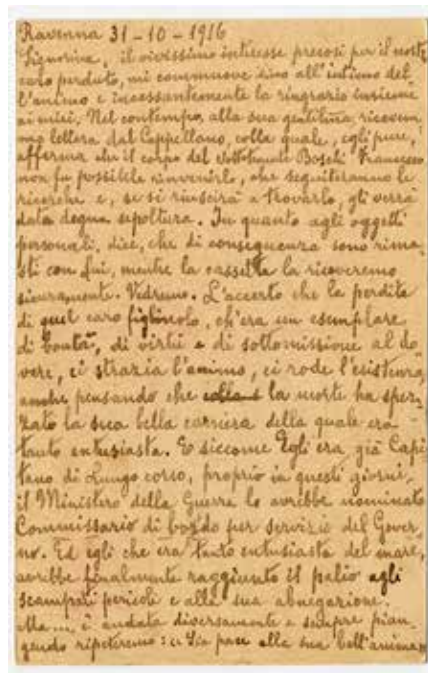 Ravenna 31-10-1916
Signorina, il vivissimo interesse presosi pel nostro
caro perduto, mi commuove sino all'intimo del
l'animo e incessantemente la ringrazio insieme
ai miei. Nel contempo, alla sua gentilezza ricevem
mo lettera dal Cappellano, colla quale, egli pure,
afferma che il corpo del Sottotenente Boschi Francesco
non fu possibile rinvenirlo, che seguiteranno le
ricerche e, se si riuscirà a trovarlo, gli verrà
data degna sepoltura. In quanto agli oggetti
personali, dice, che di conseguenza sono rima
sti con Lui, mentre la cassetta la riceveremo
sicuramente. Vedremo. L'accerto che la perdita
di quel caro figliuolo, ch'era un esemplare
di bontà, di virtù e di sottomissione al do
vere, ci strazia l'animo, ci rode l'esistenza,
anche pensando che la morte ha spez
zato la sua bella carriera della quale era
tanto entusiasta. E siccome Egli era già Capi
tano di Lungo corso, proprio in questi giorni,
il Ministero della Guerra lo avrebbe nominato
Commissario di bordo per servizio del Gover
no. Ed egli che era tanto entusiasta del mare,
avrebbe finalmente raggiunto il palio agli
scampati pericoli e alla sua abnegazione.
Ma.... è andata diversamente e sempre pian
gendo ripeteremo: « Sia pace alla sua bell'anima »